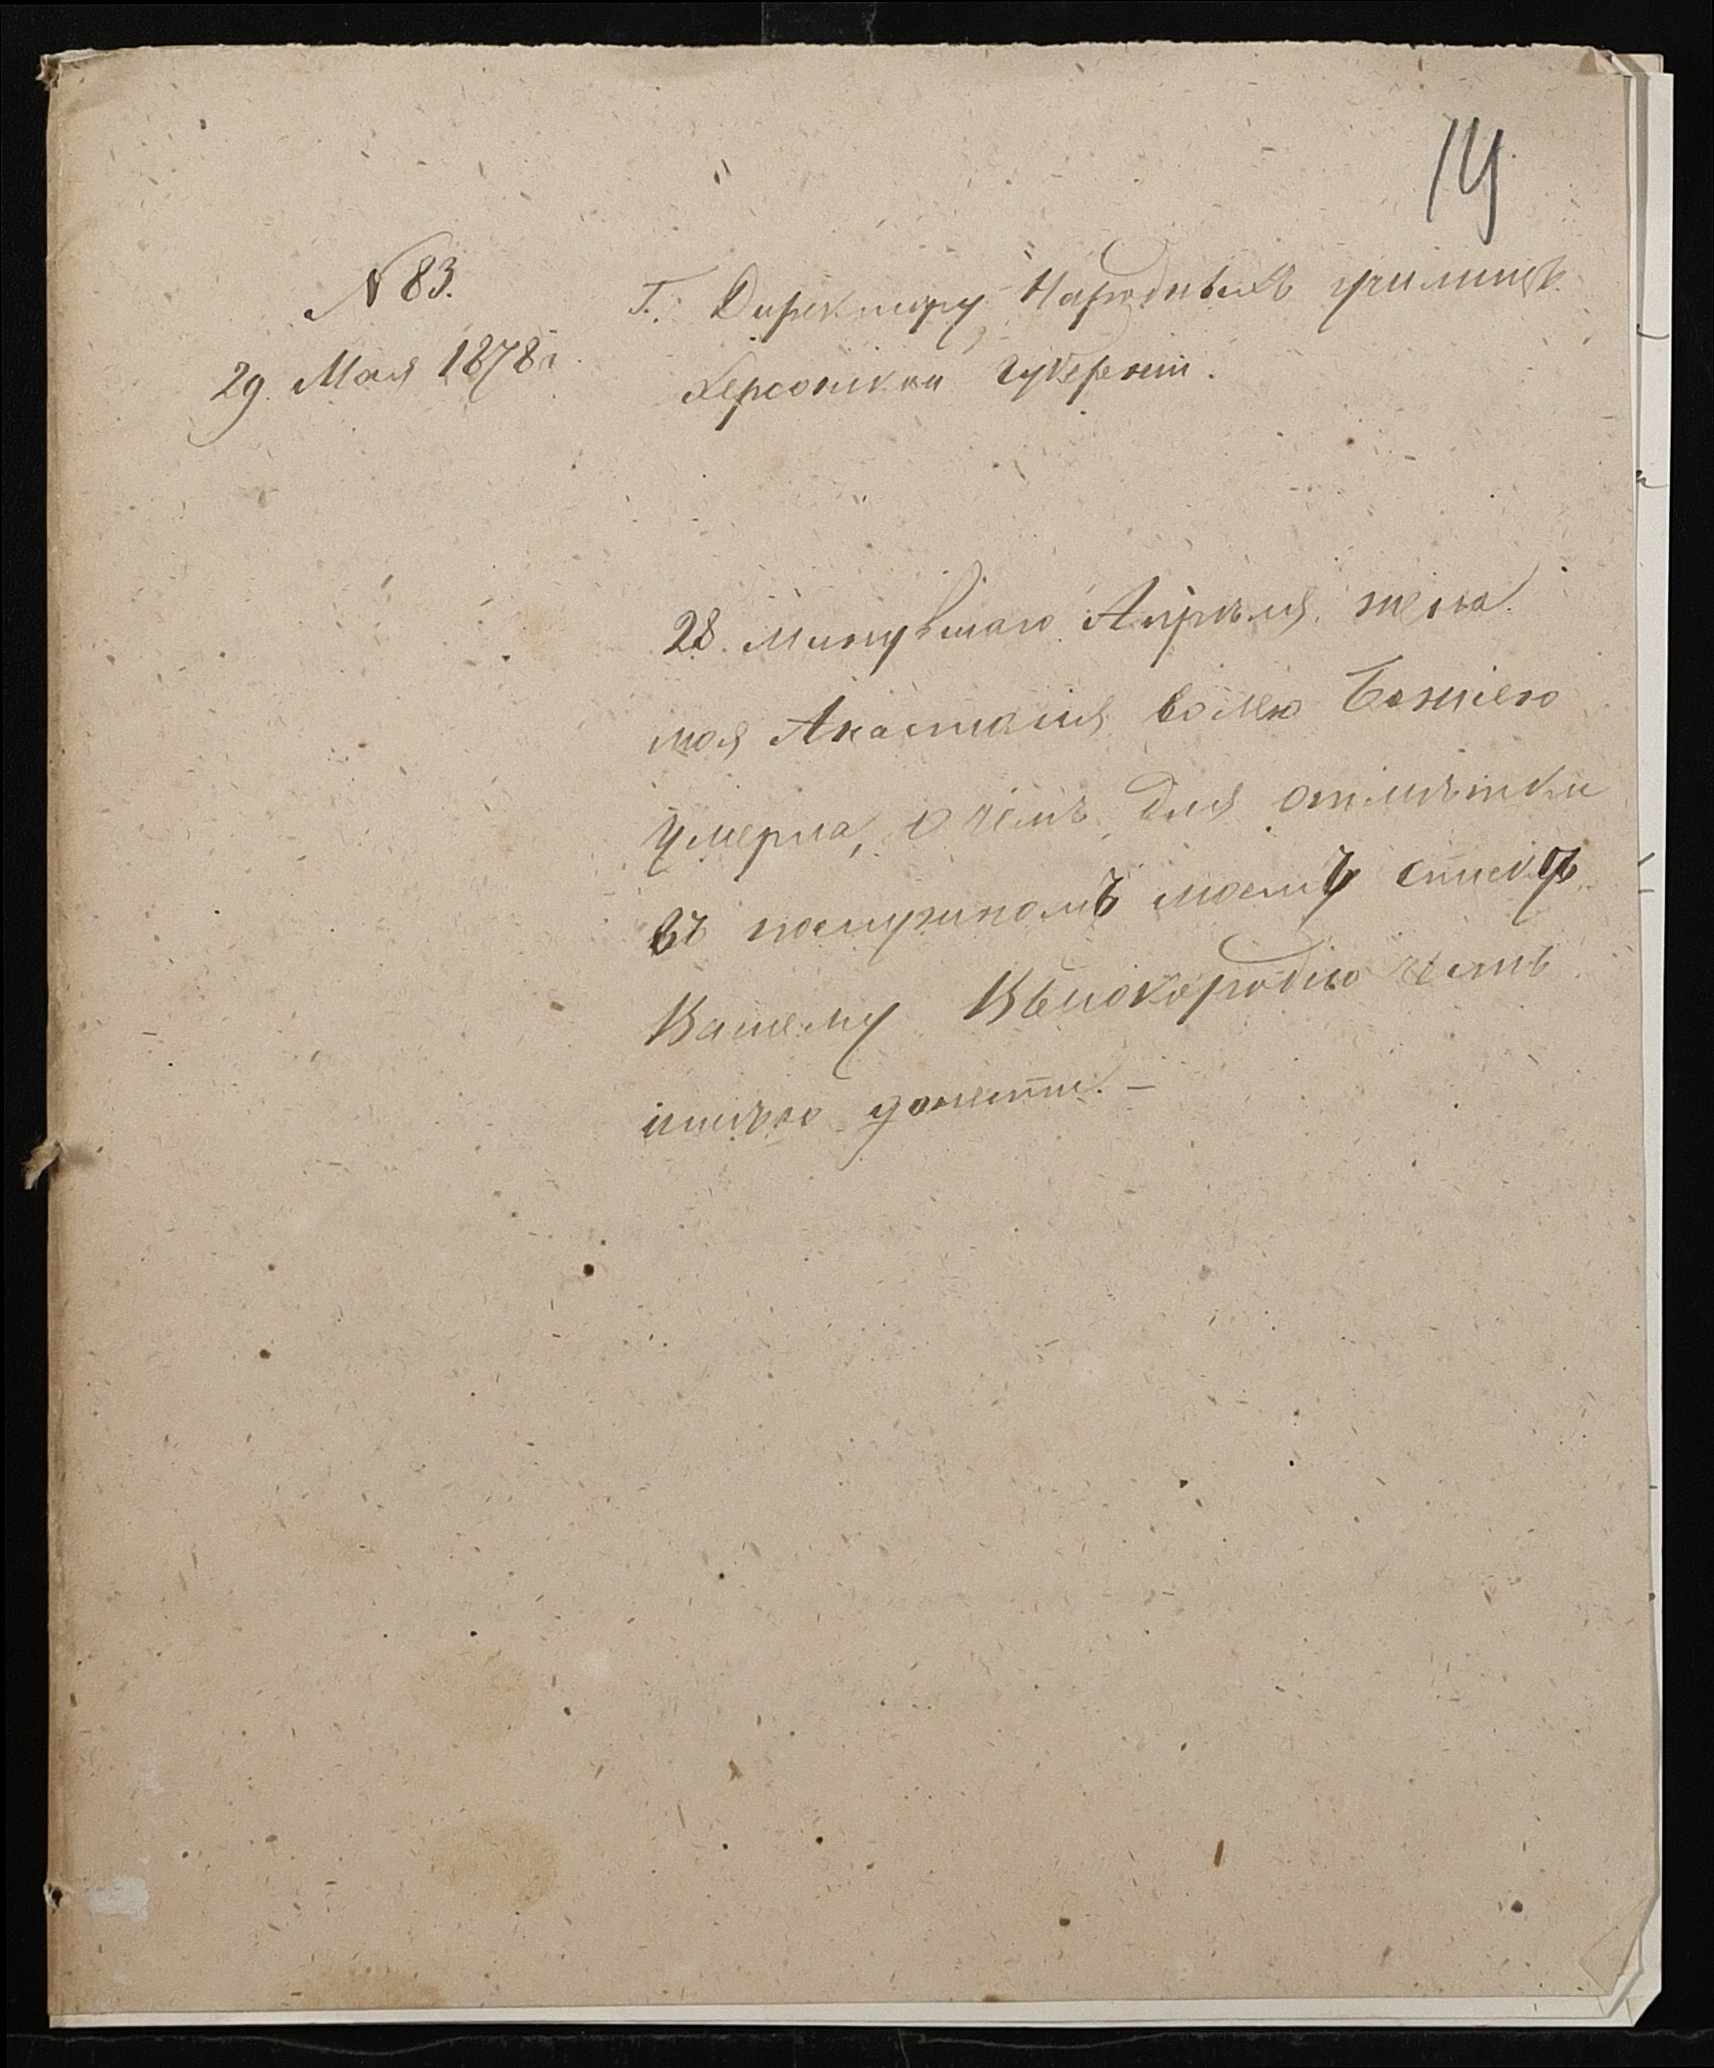 14
N 83.
29. Мая 1878 г.
Г. Директору Народныхъ училищъ
Херсонской губерніи.
28. минувшаго Апрѣля, жена
моя Анастасія волею Божіею
умерла, о чемъ для отмѣтки
въ послужномъ моемъ спискѣ
Вашему Высокородію честь
имѣю донести. —